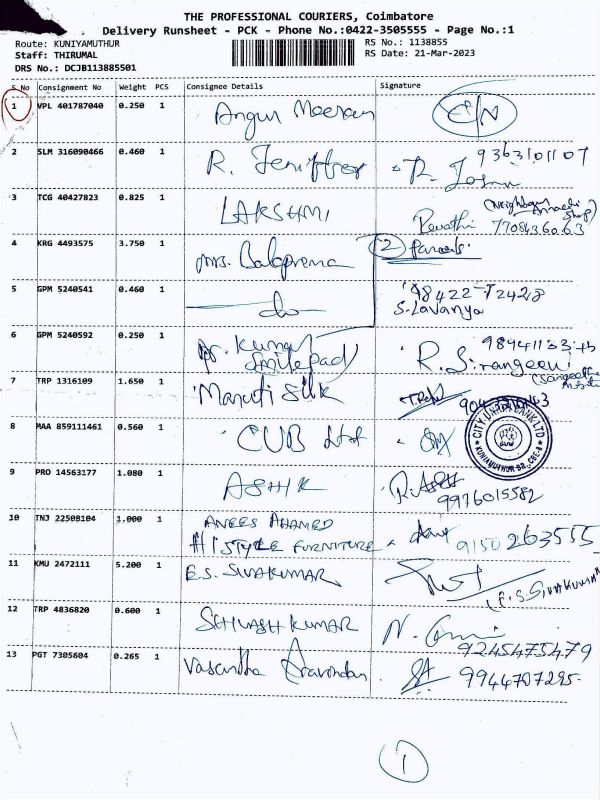 THE PROFESSIONAL COURIERS, Coimbatore
Delivery Runsheet - PCK - Phone No.:0422-3505555 - Page No.:1
Route: KUNIYAMUTHUR RS No.: 1138855
Staff: THIRUMAL RS Date: 21-Mar-2023
DRS No.: DCJB113885501
S No Consignment No Weight PCS Consignee Details Signature
1 VPL 401787040 0.250 1 Angur Meeran C/N
2 SLM 316090466 0.460 1 R. Jeniffer 9363101107
3 TCG 40427823 0.825 1 LAKSHMI Revathi 7708436063
4 KRG 4493575 3.750 1 Mrs. Balaprema 2 Parcels
5 GPM 5240541 0.460 1 do 98422-72428
S. Lavanya
6 GPM 5240592 0.250 1 Dr. Kumar
Smilepad R. Sirangeevi
7 TRP 1316109 1.650 1 Maruti Silk
8 MAA 859111461 0.560 1 CUB Ltd
CITY UNION BANK LTD
KUNIAMUTHUR BR., CBE-4
9 PRO 14563177 1.080 1 ASHIK R. Ashik
9976015582
10 TNJ 22508104 1.000 1 ANEES AHAMED
HI STYLE FURNITURE 9150263555
11 KMU 2472111 5.200 1 E.S. SIVAKUMAR (E.S. SIVAKUMAR)
12 TRP 4836820 0.600 1 SHIVASH KUMAR
9245475479
13 PGT 7305604 0.265 1 Vasantha Aravindan 9944707295
1